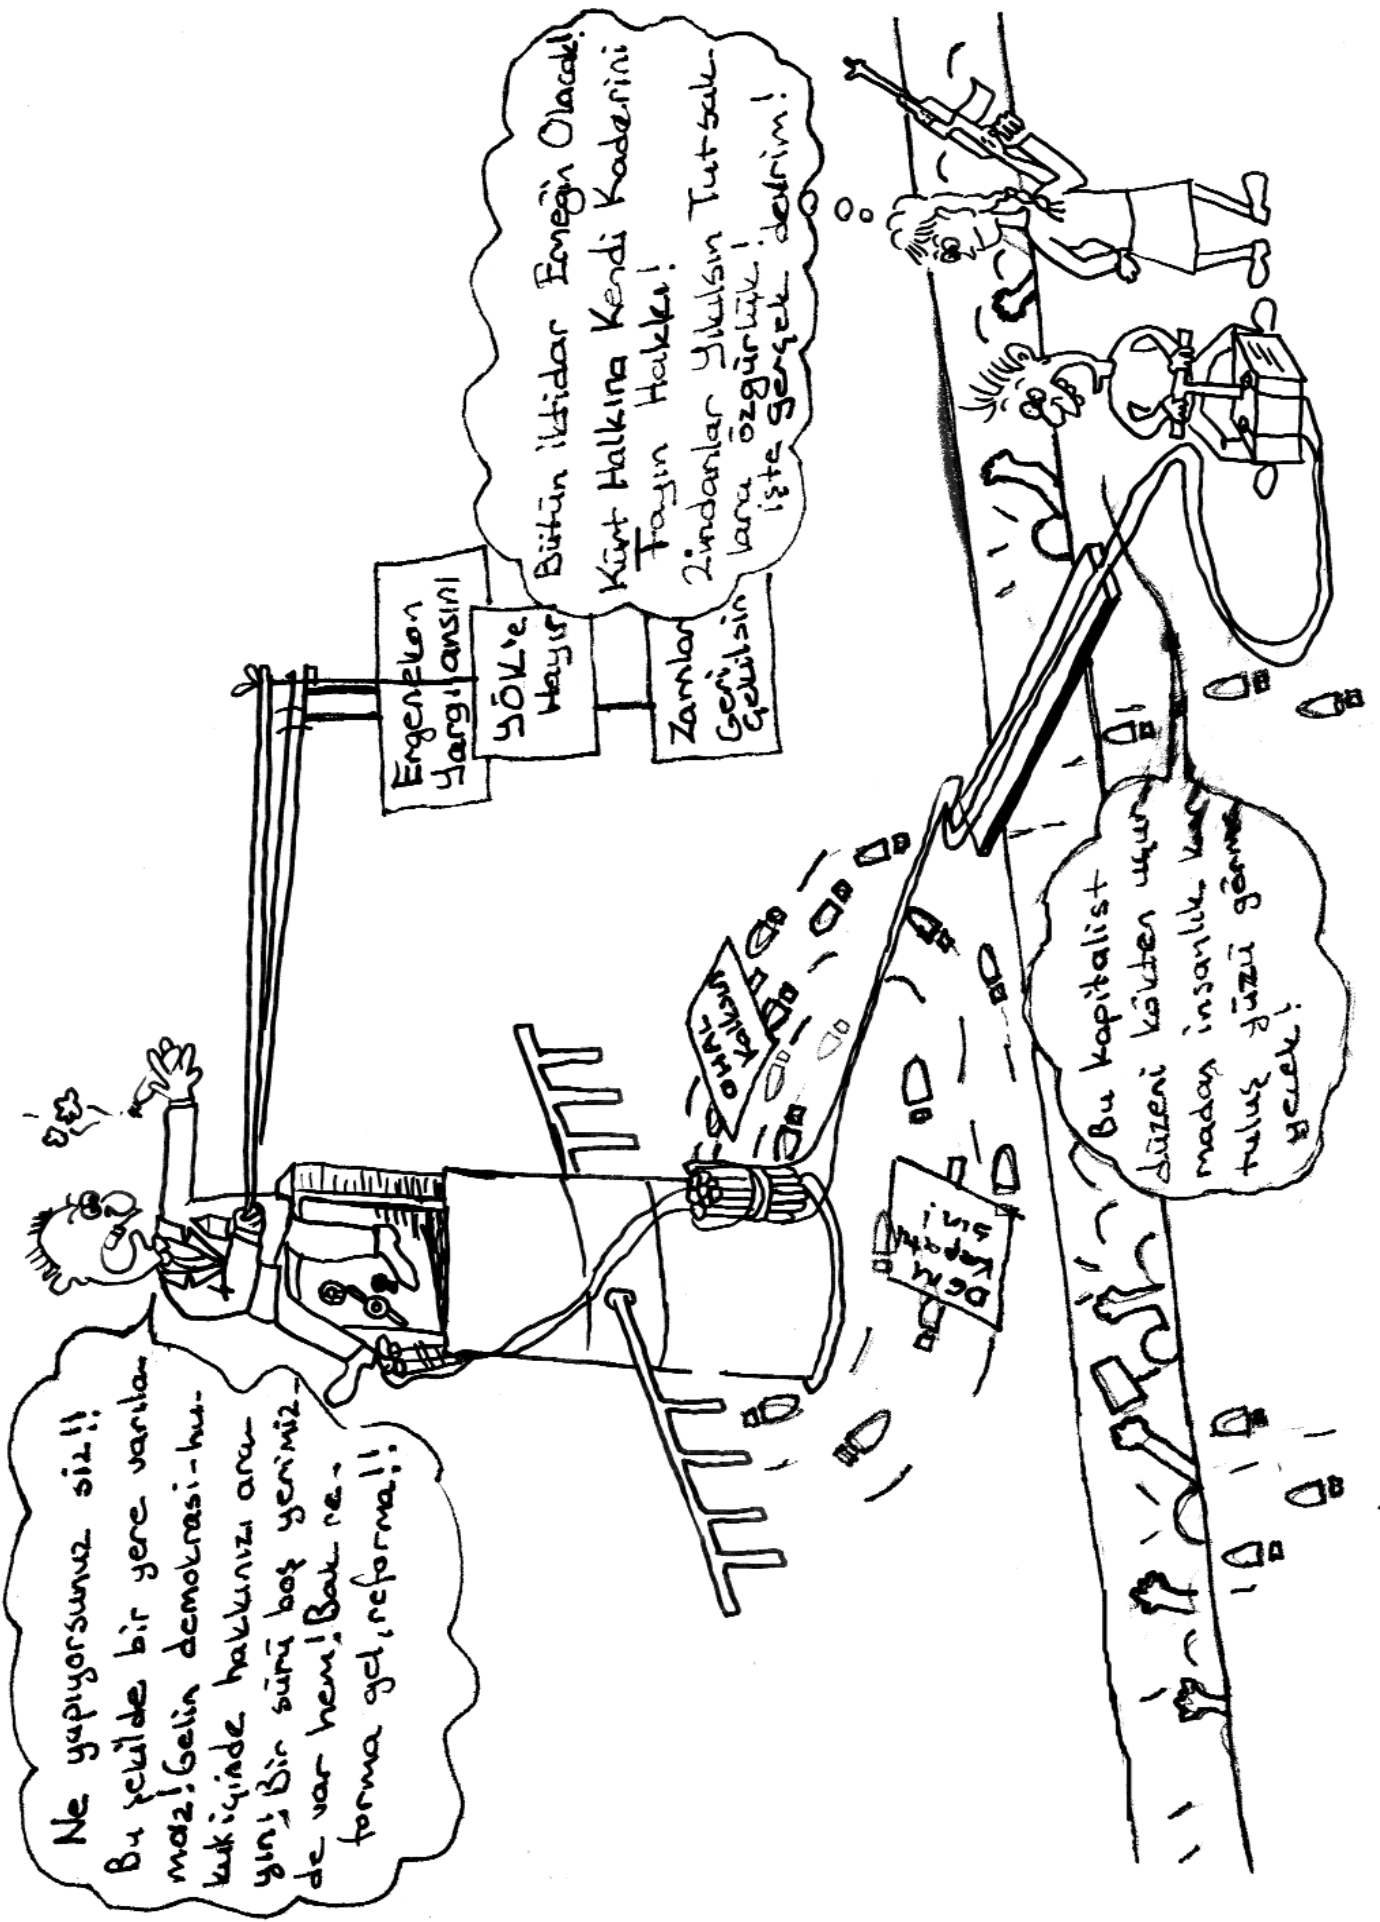 Ne yapıyorsunuz siz!!
Bu şekilde bir yere varıla-
maz! Gelin demokrasi-hu-
kuk içinde hakkınızı ara-
yın! Bir sürü boş yerimiz-
de var hem! Bak re-
forma gel, reforma!!
Ergenekon
Yargılansın!
YÖK'e
Hayır
Zamlar
Geri
Çekilsin
Bütün iktidar Emeğin Olacak!
Kürt Halkına Kendi Kaderini
Tayin Hakkı!
Zindanlar Yıkılsın Tutsak-
lara özgürlük!
işte gerçek devrim!
OHAL
Kalksın
DGM
Kapatıl
sın!
Bu kapitalist
düzeni kökten uçur-
madan insanlık kur-
tuluş yüzü görme-
yecek!